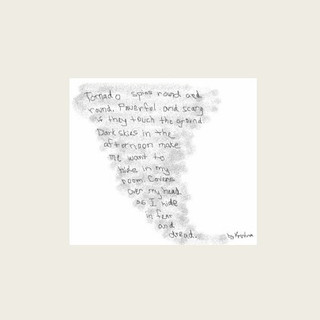 Tornado spins round and
round. Powerful and scary
as they touch the ground.
Dark skies in the
afternoon make
me want to
hide in my
room. Covers
over my head
as I hide
in fear
and
dread.
by